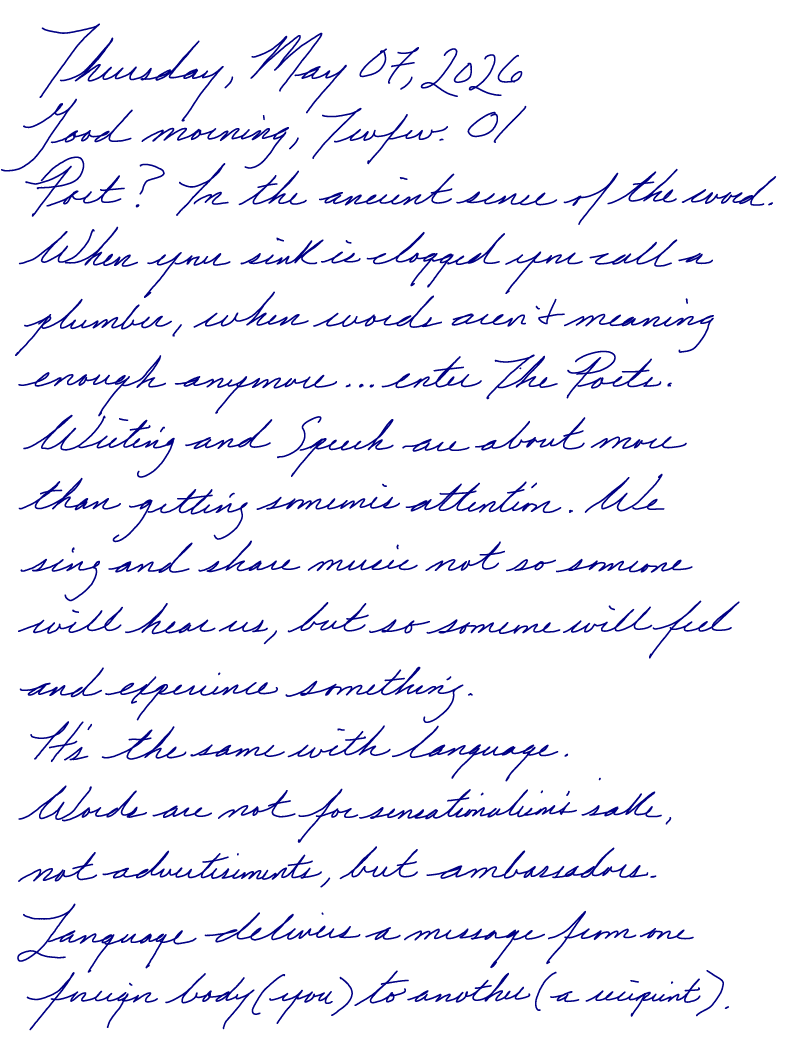 Thursday, May 07, 2026
Good morning, Twfw. 01
Poet? In the ancient sense of the word.
When your sink is clogged you call a
plumber, when words aren't meaning
enough anymore... enter The Poets.
Writing and Speech are about more
than getting someone's attention. We
sing and share music not so someone
will hear us, but so someone will feel
and experience something.
It's the same with language.
Words are not for sensationalism's sake,
not advertisements, but ambassadors.
Language delivers a message from one
foreign body (you) to another (a recipient).